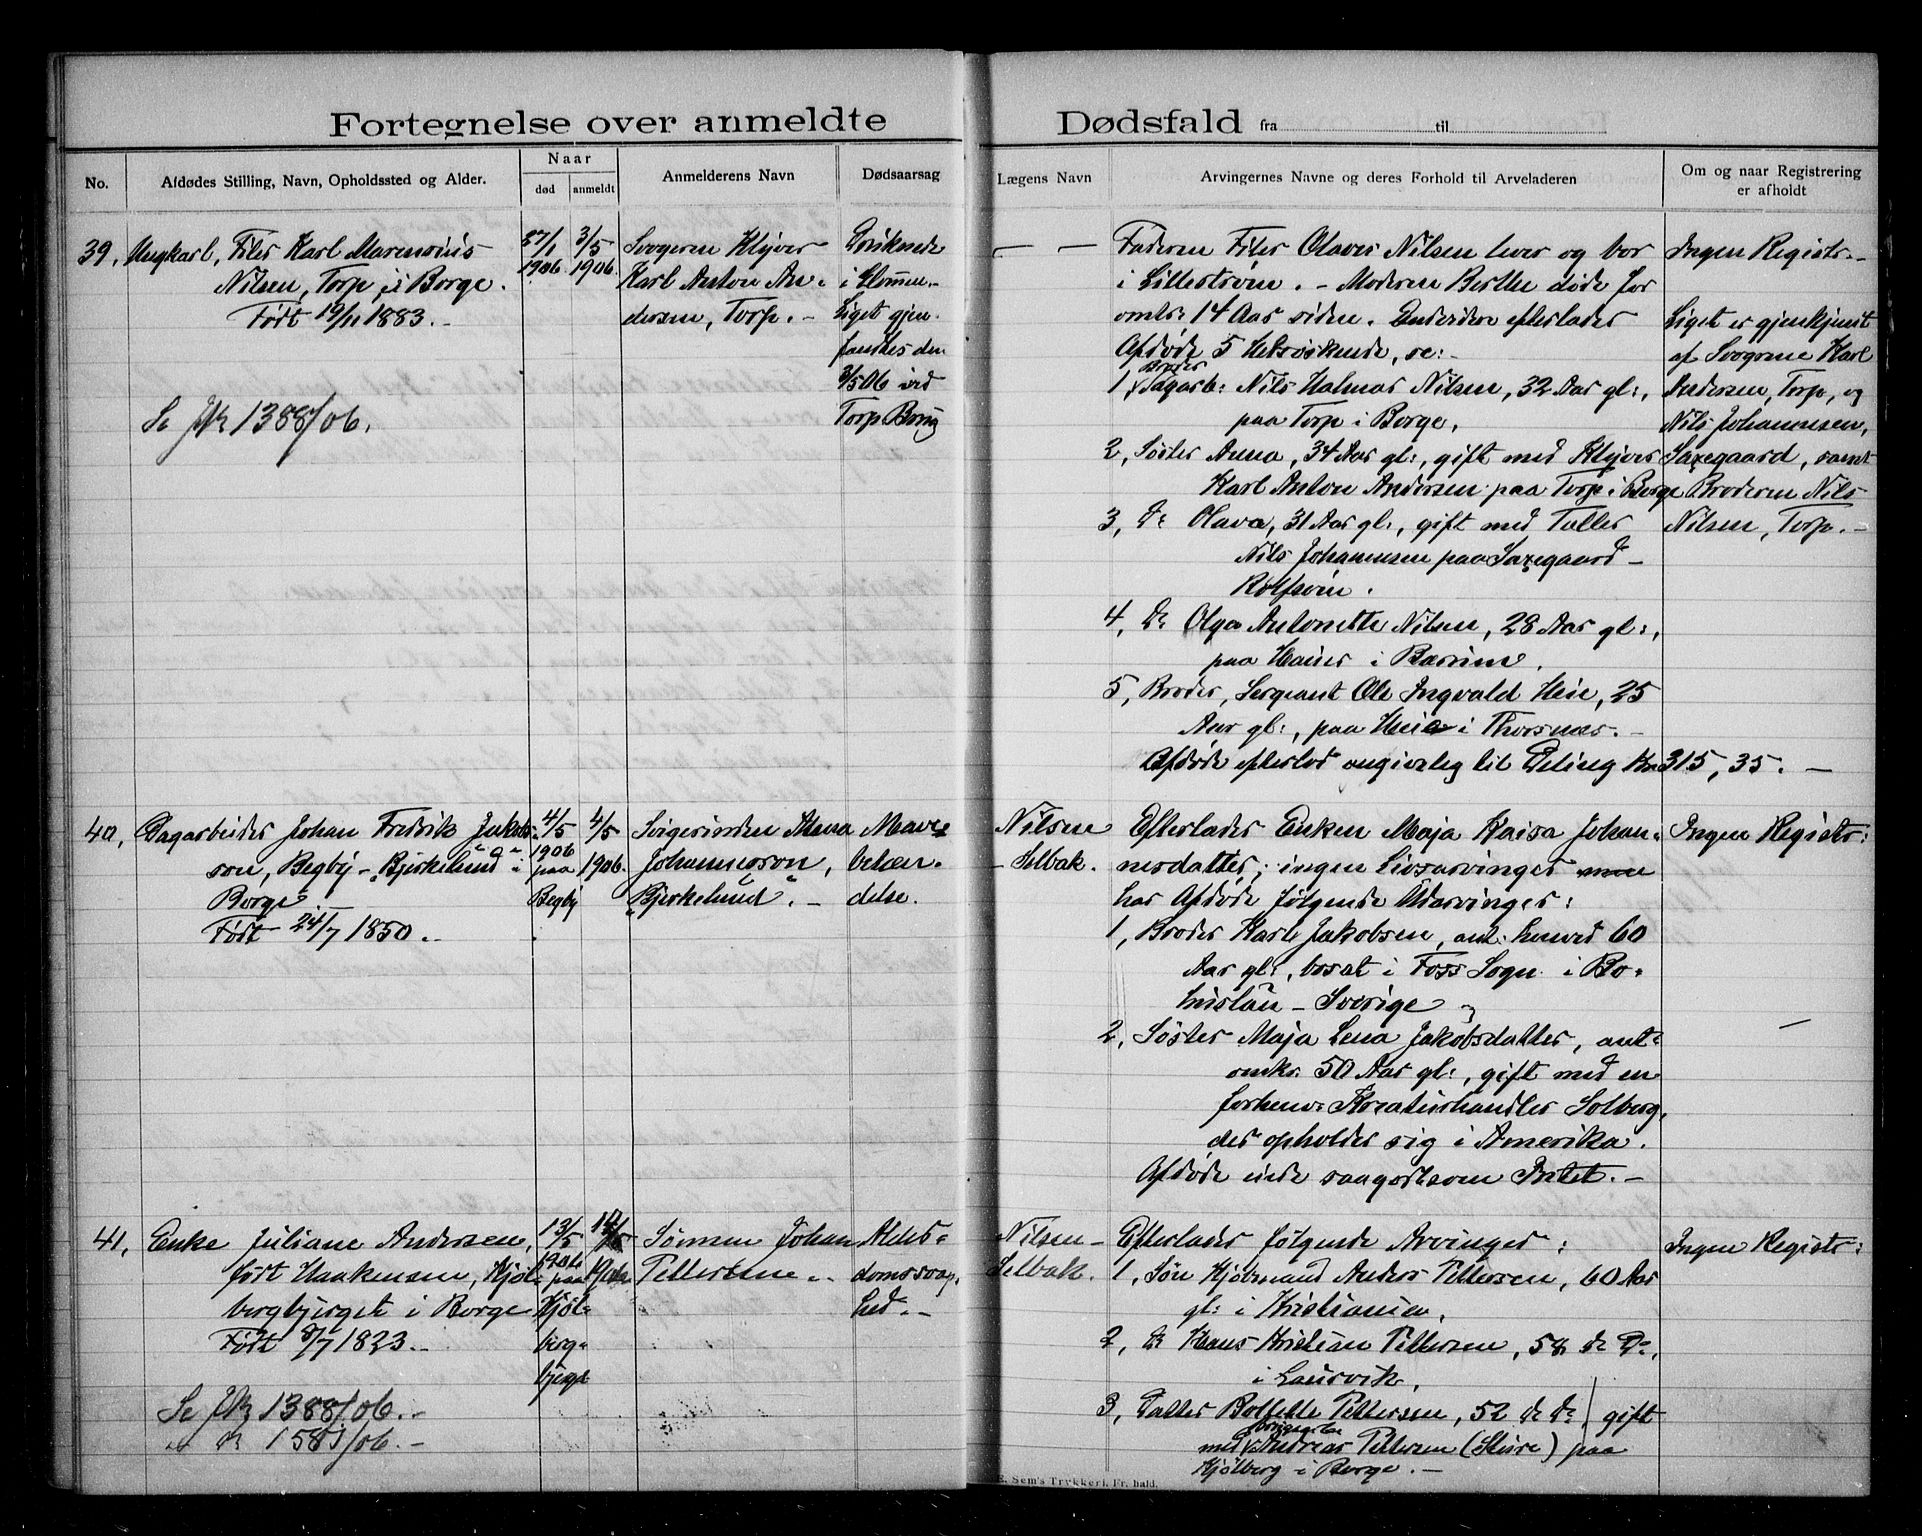 Fortegnelse over anmeldte Dødsfald fra til
No.
Afdødes Stilling, Navn, Opholdssted og Alder.
Naar
død
anmeldt
Anmelderens Navn
Dødsaarsag
Lægens Navn
Arvingernes Navne og deres Forhold til Arveladeren
Om og naar Registrering
er afholdt
39, Ungkarl, Filer Karl Marensius
Nilsen, Torp i Borge.
Født 19/11 1883. -
Se JN 1388/06.
27/1
1906
3/5
1906.
Svogeren Kløver
Karl Anton An-
dersen, Torp. -
Druknede
i Glommen.
Liget gjen-
fandtes den
3/5 06 ved
Torp Brug
— —
Faderen Filer Olaves Nilsen lever og bor
i Lillestrøm. - Moderen Berthe døde for
omkr: 14 Aar siden. Endvidere efterlader
Afdøde 5 Helsøskende, se:
Broder
1, Dagarb: Nils Halmar Nilsen, 32 Aar gl:,
paa Torp i Borge,
2, Søster Anna, 34 Aar gl:, gift med Kløver
Karl Anton Andersen paa Torp i Borge
3, Do Olava, 31 Aar gl:, gift med Tæller
Nils Johannesen paa Saxegaard -
Rolfsøen.
4, Do Olga Antonette Nilsen, 28 Aar gl:,
paa i Bærum.
5, Broder, Sergeant Ole Ingvald Heie, 25
Aar gl:, paa Heie i Thorsnæs. -
Afdøde efterlod angivelig til Deling Kr 315,35. -
Ingen Registr. -
Liget er gjenkjent
af Svogrene Karl
Andersen, Torp, og
Nils Johannesen,
Saxegaard, samt
Broderen Nils
Nilsen, Torp. -
40, Dagarbeider Johan Fredrik Jakob-
son, Begby - "Bjerkelund" i
Borge
Født 24/7 1850. -
4/5
1906
paa
Begby
4/5
1906.
Svigerinden Anna
Johannesson,
"Bjerkelund". -
Mave-
betæn-
delse.
Nilsen
- Selbak.
Efterlader Enken Maja Kaisa Johan-
nesdatter; ingen Livsarvinger men
har Afdøde følgende Udarvinger:
1, Broder Karl Jakobsen, ant: henved 60
Aar gl:, bosat i Foss Sogn i Bo-
huslän - Sverige og
2, Søster Maja Lena Jakobsdatter, ant:
omkr: 50 Aar gl:, gift med en
forhenv: Kreaturhandler Solberg,
der opholder sig i Amerika.
Afdøde eiede saagodtsom Intet. -
Ingen Registr:
—
41, Enke Juliane Andersen,
født Haakensen, Kjøl-
bergbjerget i Borge
Født 8/7 1823. -
Se JN 1388/06. -
" Do 1583/06. -
13/5
1906
paa
Kjøl-
berg-
bjerget
14/5
1906
Sønnen Johan
Pettersen. -
Alder-
domssvag-
hed. -
Nilsen -
Selbak.
Efterlader følgende Arvinger:
1, Søn Kjøbmand Anders Pettersen, 60 Aar
gl: i Kristiania,
2, Do Hans Kristian Pettersen, 58 do Do,
i Laurvik,
3, Datter Bolette Pettersen, 52 do Do, gift
med Andreas Pettersen (Sture) paa
Kjølberg i Borge. -
Ingen Registr:
E. Sem's Trykkeri, Fr. hald.